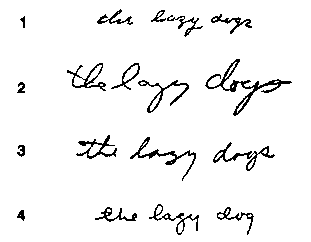 1 the lazy dogs
2 the lazy dogs
3 the lazy dogs
4 the lazy dog